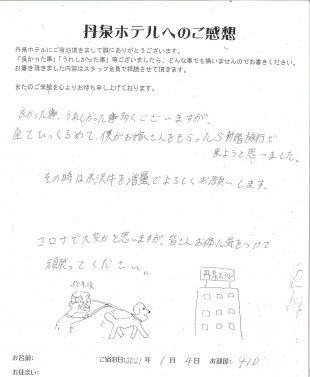 丹泉ホテルへのご感想
丹泉ホテルにご宿泊頂きまして誠にありがとうございます。
「良かった事」「うれしかった事」等ございましたら、どんな事でも構いませんのでお書きください。
お書き頂きました内容はスタッフ全員で拝読させて頂きます。
またのご来館を心よりお待ち申し上げております。
良かった事、うれしかった事多々ございますが、
全てひっくるめて、僕がお嫁さんをもらったら新婚旅行で
来ようと思いました。
その時は米沢牛を増量でよろしくお願いします。
コロナで大変かと思いますが、皆さんお体に気をつけて
頑張ってください。
丹泉ホテル
お名前:
ご宿泊日:2021年 1月 4日 お部屋: 410
お住まい: